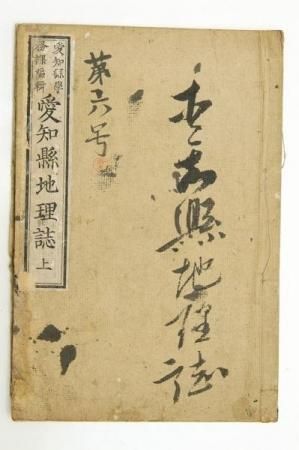 愛知縣地理誌
第六号
愛知縣學
務課編輯
愛知縣地理誌 上